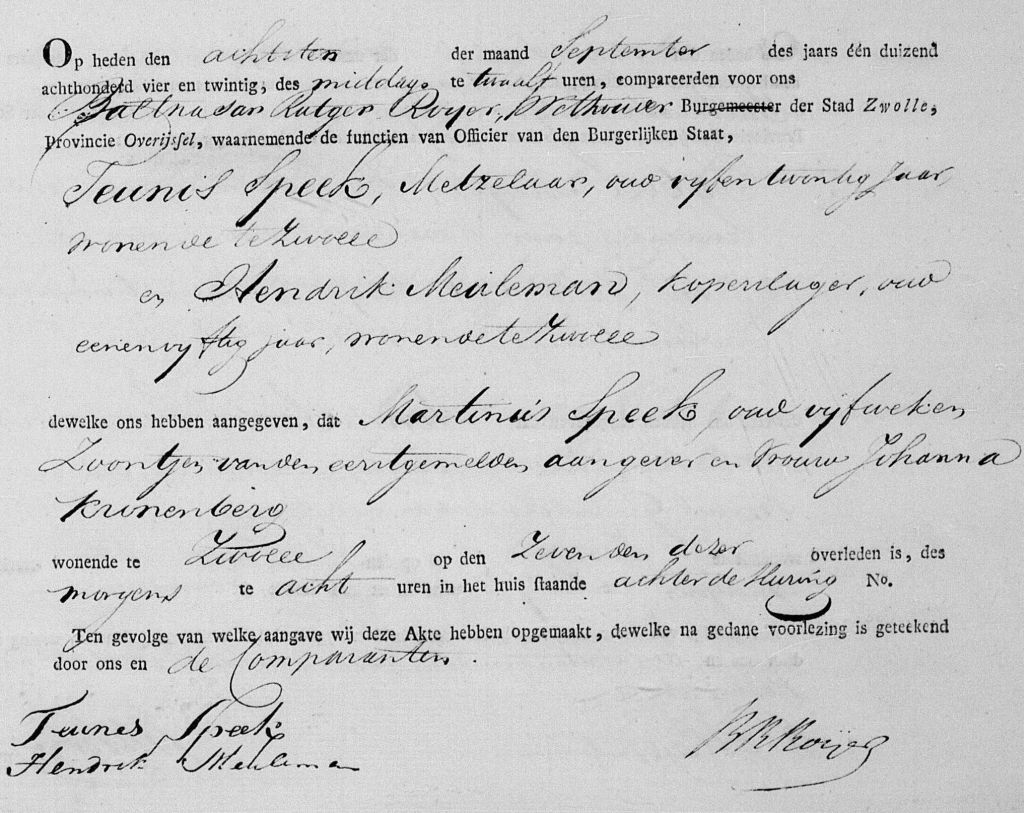 Op heden den achtsten der maand September des jaars één duizend
achthonderd vier en twintig, des middags te twaalf uren, compareerden voor ons
Balthasar Rutger Royer, Wethouder Burgemeester der Stad Zwolle,
Provincie Overijssel, waarnemende de functien van Officier van den Burgerlijken Staat,
Teunis Speek, Metzelaar, oud vyfentwintig Jaar,
wonende te Zwolle
en Hendrik Meuleman, koperslager, oud
eenenvyftig jaar, wonende te Zwolle
dewelke ons hebben aangegeven, dat Martinus Speek, oud vyf weken
Zoontjen van den eerstgemelden aangever en Vrouw Johanna
Kronenberg
wonende te Zwolle op den Zevenden dezer overleden is, des
morgens te acht uren in het huis staande achter de No.
Ten gevolge van welke aangave wij deze Akte hebben opgemaakt, dewelke na gedane voorlezing is geteekend
door ons en de Comparanten.
Teunes Speek
Hendrik Meuleman
BRRoijer